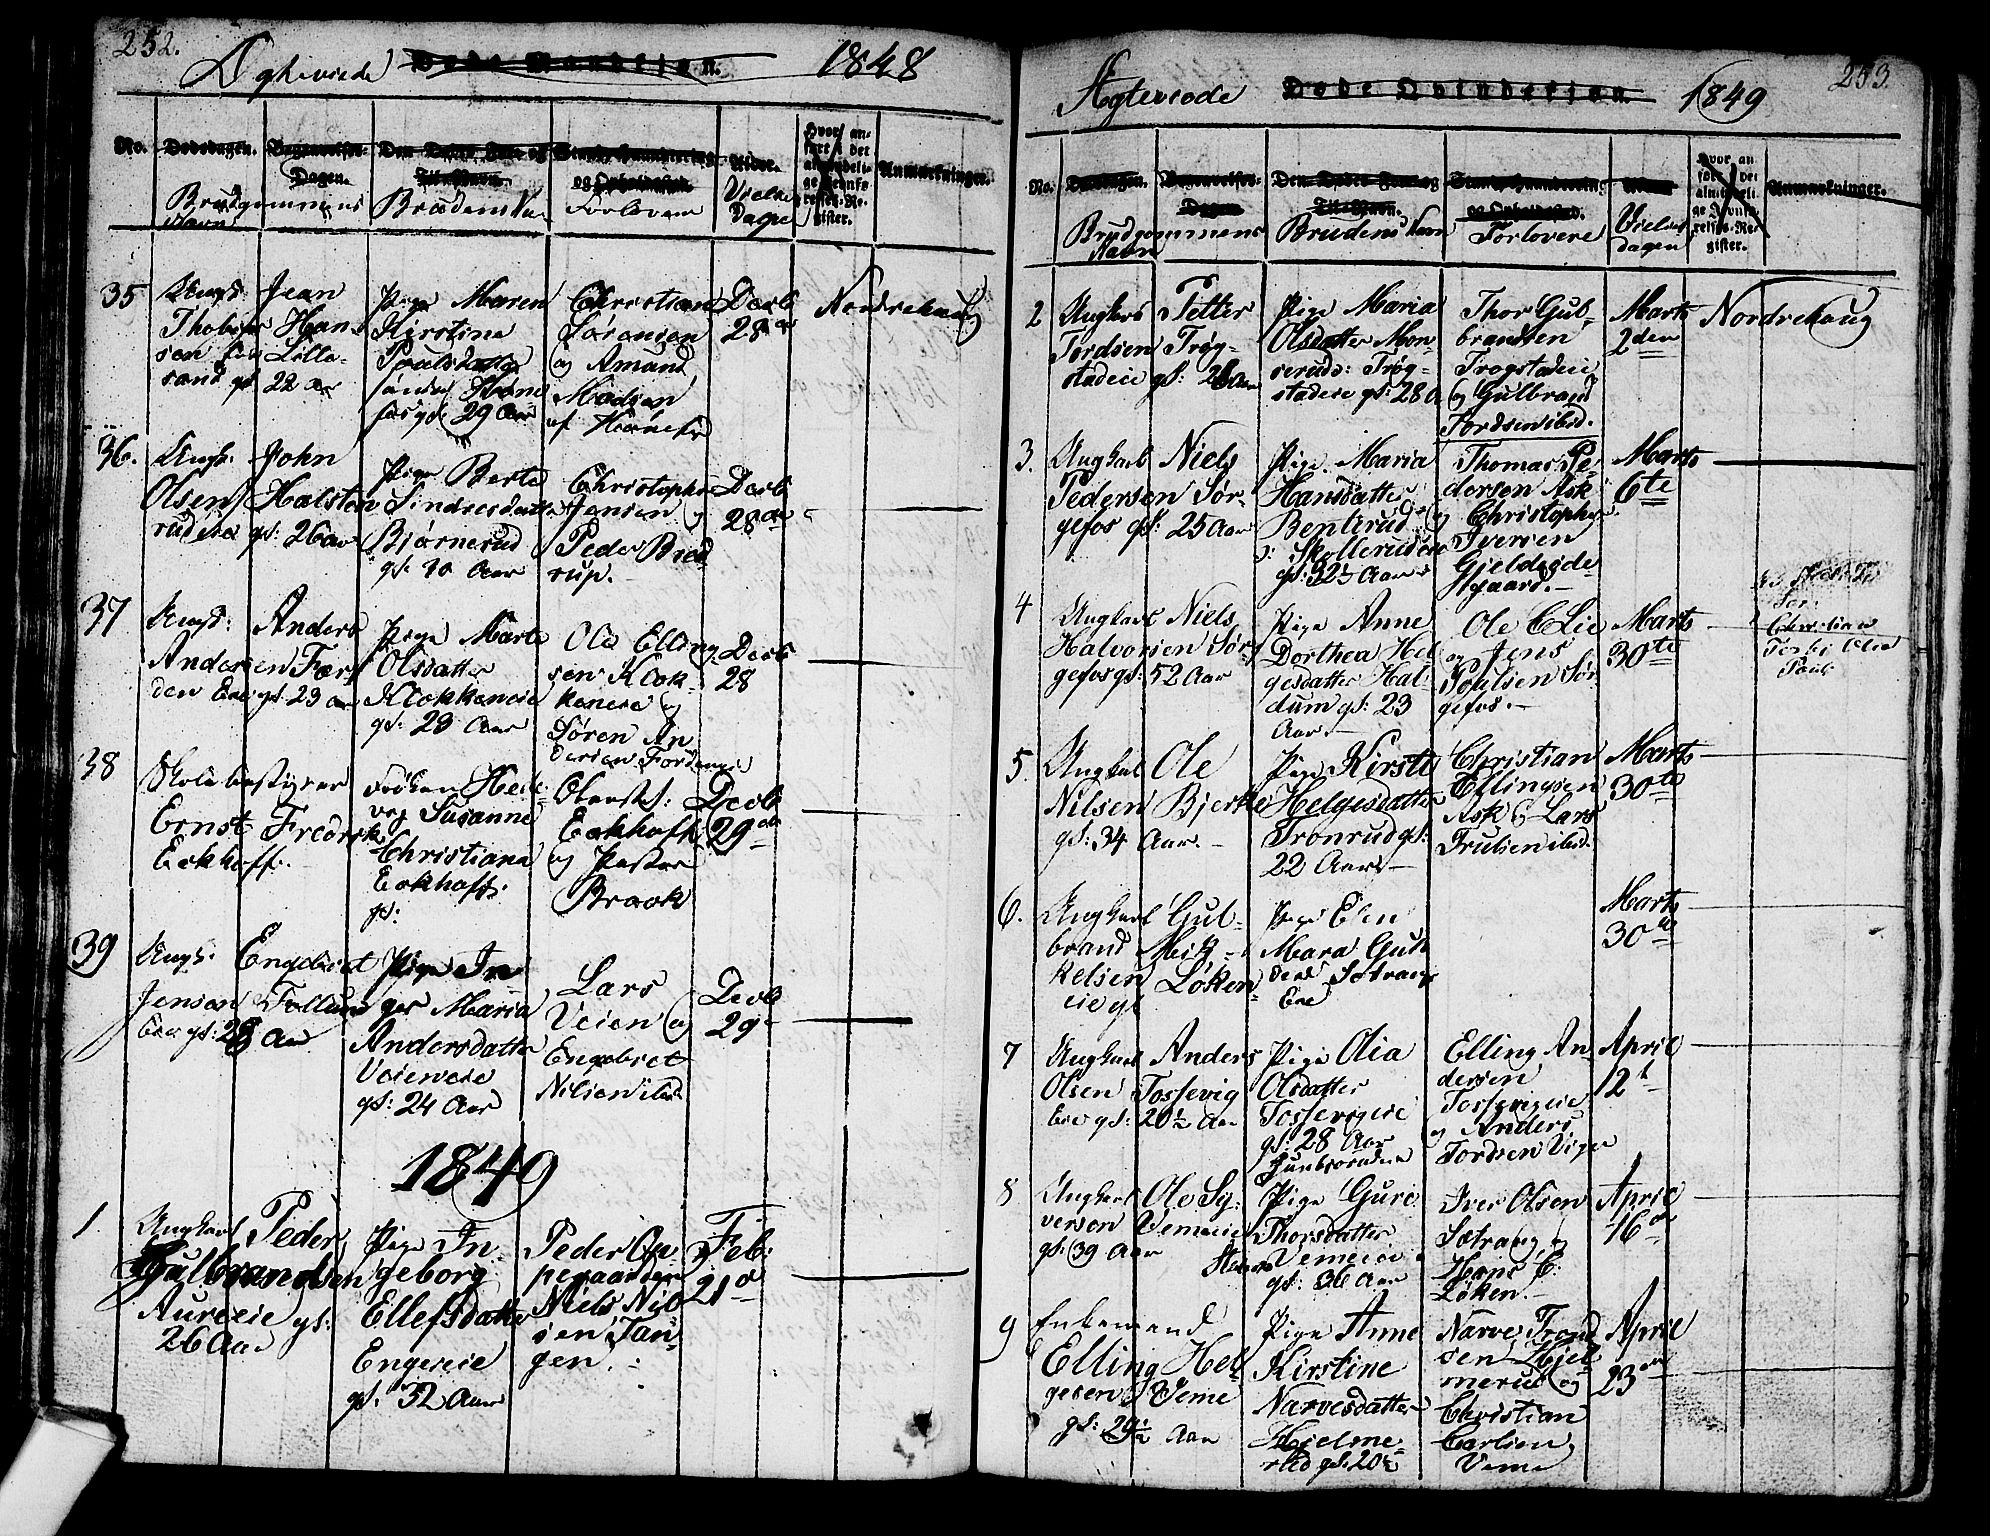 252.
Ægteviede Døde Mandkjøn. 1848
No.
Dødsdagen.
Begravelses-Dagen.
Den Dødes For- og Til-Navn.
Stand, Haandtering og Opholdssted.
Alder.
Hvor anført i det almindelige Jevnførelses-Register.
Anmærkninger.
Brudgommens Navn
Brudens Navn
Forlovere
Vielses Dage
35
Ungk: Jean
Thobias Han
sen fra Lille-
sand gl. 22 Aar
Pige Maren
Kirstine
Poulsdatter
Søndre Høne
fos gl. 29 Aar
Christian
Sørensen
og Amund
Madsen
af Hønefos
Decb
28de
Nordrehaug
36.
Ungk: John
Olsen Halsten
rudeie gl: 26 Aar
Pige Berte
Sindresdatter
Bjørnerud
gl: 40 Aar
Christopher
Jensen og
Peder Bred
rup.
Decb
28de
37
Ungk: Anders
Andersen Fær
den Eie gl: 23 Aar
Pige Marte
Olsdatter
Klokkereie
gl: 23 Aar
Ole Elling
sen Klok-
kereie og
Søren An
dersen Fordeneie
Decb
28
38
Skolebestyrer
Ernst Fredrik
Eckhoff.
Frøken Hed-
vig Susanne
Christiana
Eckhoff.
gl:
Eckhoff
og Pastor
Brock
Decb
29de
39
Ungk: Engebret
Jensen Follum
Eie gl: 28 Aar
Pige In
ger Maria
Andersdatter
Veieneie
gl: 24 Aar
Lars
Veien og
Engebret
Nilsen ibid
Decb
29
1849
1
Ungkarl Peder
Gulbrandsen
Aureeie gl:
26 Aar
Pige In
geborg
Ellefsdatter
Engereie
gl. 32 Aar
Peder Op
pegaarden
Niels Nil
sen Tan-
gen.
Feb:
21de
253.
Ægteviede Døde Qvindekjøn. 1849
No.
Dødsdagen.
Begravelses-Dagen.
Den Dødes For- og Til-Navn.
Stand, Haandtering og Opholdssted.
Alder
Hvor anført i det almindelige Jevnførelses-Register.
Anmærkninger.
Brudgommens Navn
Brudens Navn
Forlovere
Vielses dagen
2
Ungkarl Petter
Tordsen Trøg-
stadeie gl: 26 Aar
Pige Maria
Olsdatter Mon-
serud: Trøg-
stadeie gl: 28 A
Thor Gul-
brandsen
Trogstadeie
og Gulbrand
Tordsen ibid.
Marts
2den
Nordrehaug
3.
Ungkarl Niels
Pedersen Sør-
gefos gl: 25 Aar
Pige Maria
Hansdatter
Benterud
Skollerudeie
gl: 32½ Aar
Thomas Pe-
dersen Ask
og Christopher
Iversen
Gjeldede-
gaard.
Marts
6te
4
Ungkarl Niels
Halvorsen Sør-
gefos gl: 52 Aar
Pige Anne
Dorthea Hel
gesdatter Hal-
dum gl: 23
Aar.
Ole C Lie
og Jens
Poulsen Sør
gefos.
Marts
30te
Christian
5.
Ungkal Ole
Nilsen Bjerke
gl: 34 Aar.
Pige Kirsti
Helgesdatter
Tronrud gl:
22 Aar
Christian
Ellingsen
Ask og Lars
Trulsen ibid.
Marts
30te
6.
Ungkarl Gul-
brand Mik-
kelsen Løken
eie gl
Pige Elen
Mara Gul
Sætrang
Eie
Marts
30te
7
Ungkarl Anders
Olsen Tossevig
Eie gl: 20½ Aar
Pige Olia
Olsdatter
Tossevigeie
gl: 28 Aar
Elling An
dersen
Tossevigeie
og Anders
Tordsen Viger
April
12t
8
Ungkarl Ole Sy-
versen Vemeeie
gl: 39 Aar
Pige Guri
Thorsdatter
Vemeeie
gl: 36 Aar
Iver Olsen
Sætrang og
Hans E.
Løken.
April
16de
9
Enkemand
Elling Hel
gesen Veme
gl: 29½ Aar
Pige Anne
Kirstine
Narvesdatter
Hjelme-
rud gl: 20½
Narve Trond
sen Hjel
merud og
Christian
Carlsen
Veme
April
23de